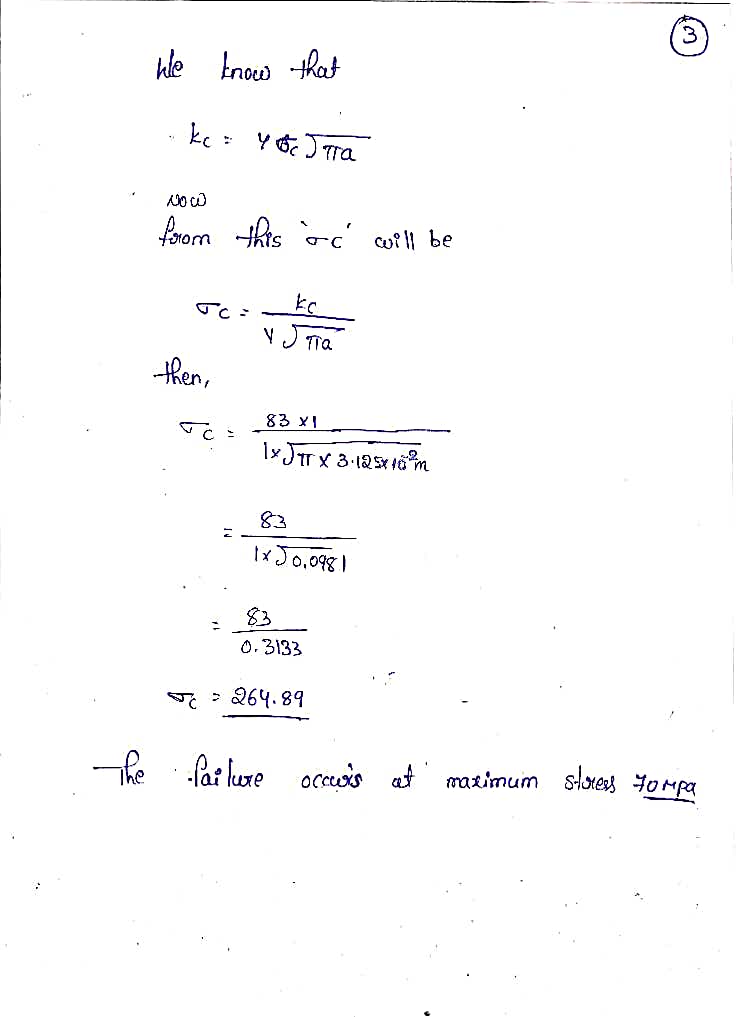 3
We know that
kc = Y σc √πa
Now
from this 'σc' will be
σc = kc / Y√πa
then,
σc = 83 x 1 / 1x√π x 3.125x10⁻²m
= 83 / 1x√0.0981
= 83 / 0.3133
σc = 264.89
The failure occurs at maximum stress 70 MPa